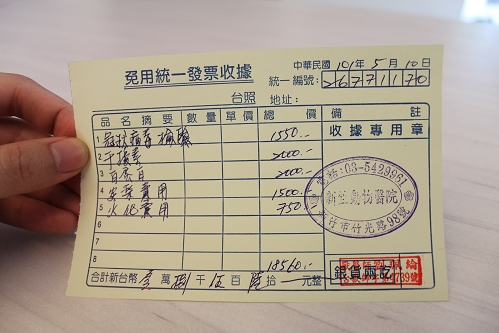 免用統一發票收據
中華民國 101年 5月 10日
統一編號: 26771170
台照 地址:
品名摘要 數量 單價 總價 備註
1 冠狀病毒檢驗 1550.-
2 干擾素 2000.-
3 白蛋白 2000.-
4 安養費用 1500.-
5 火化費用 750
6
7
8 18560.-
合計新台幣 壹萬 捌千 伍百 陸拾 元整
收據專用章
電話:03-5429961
新竹市竹光路98號
動物醫院
銀貨兩訖